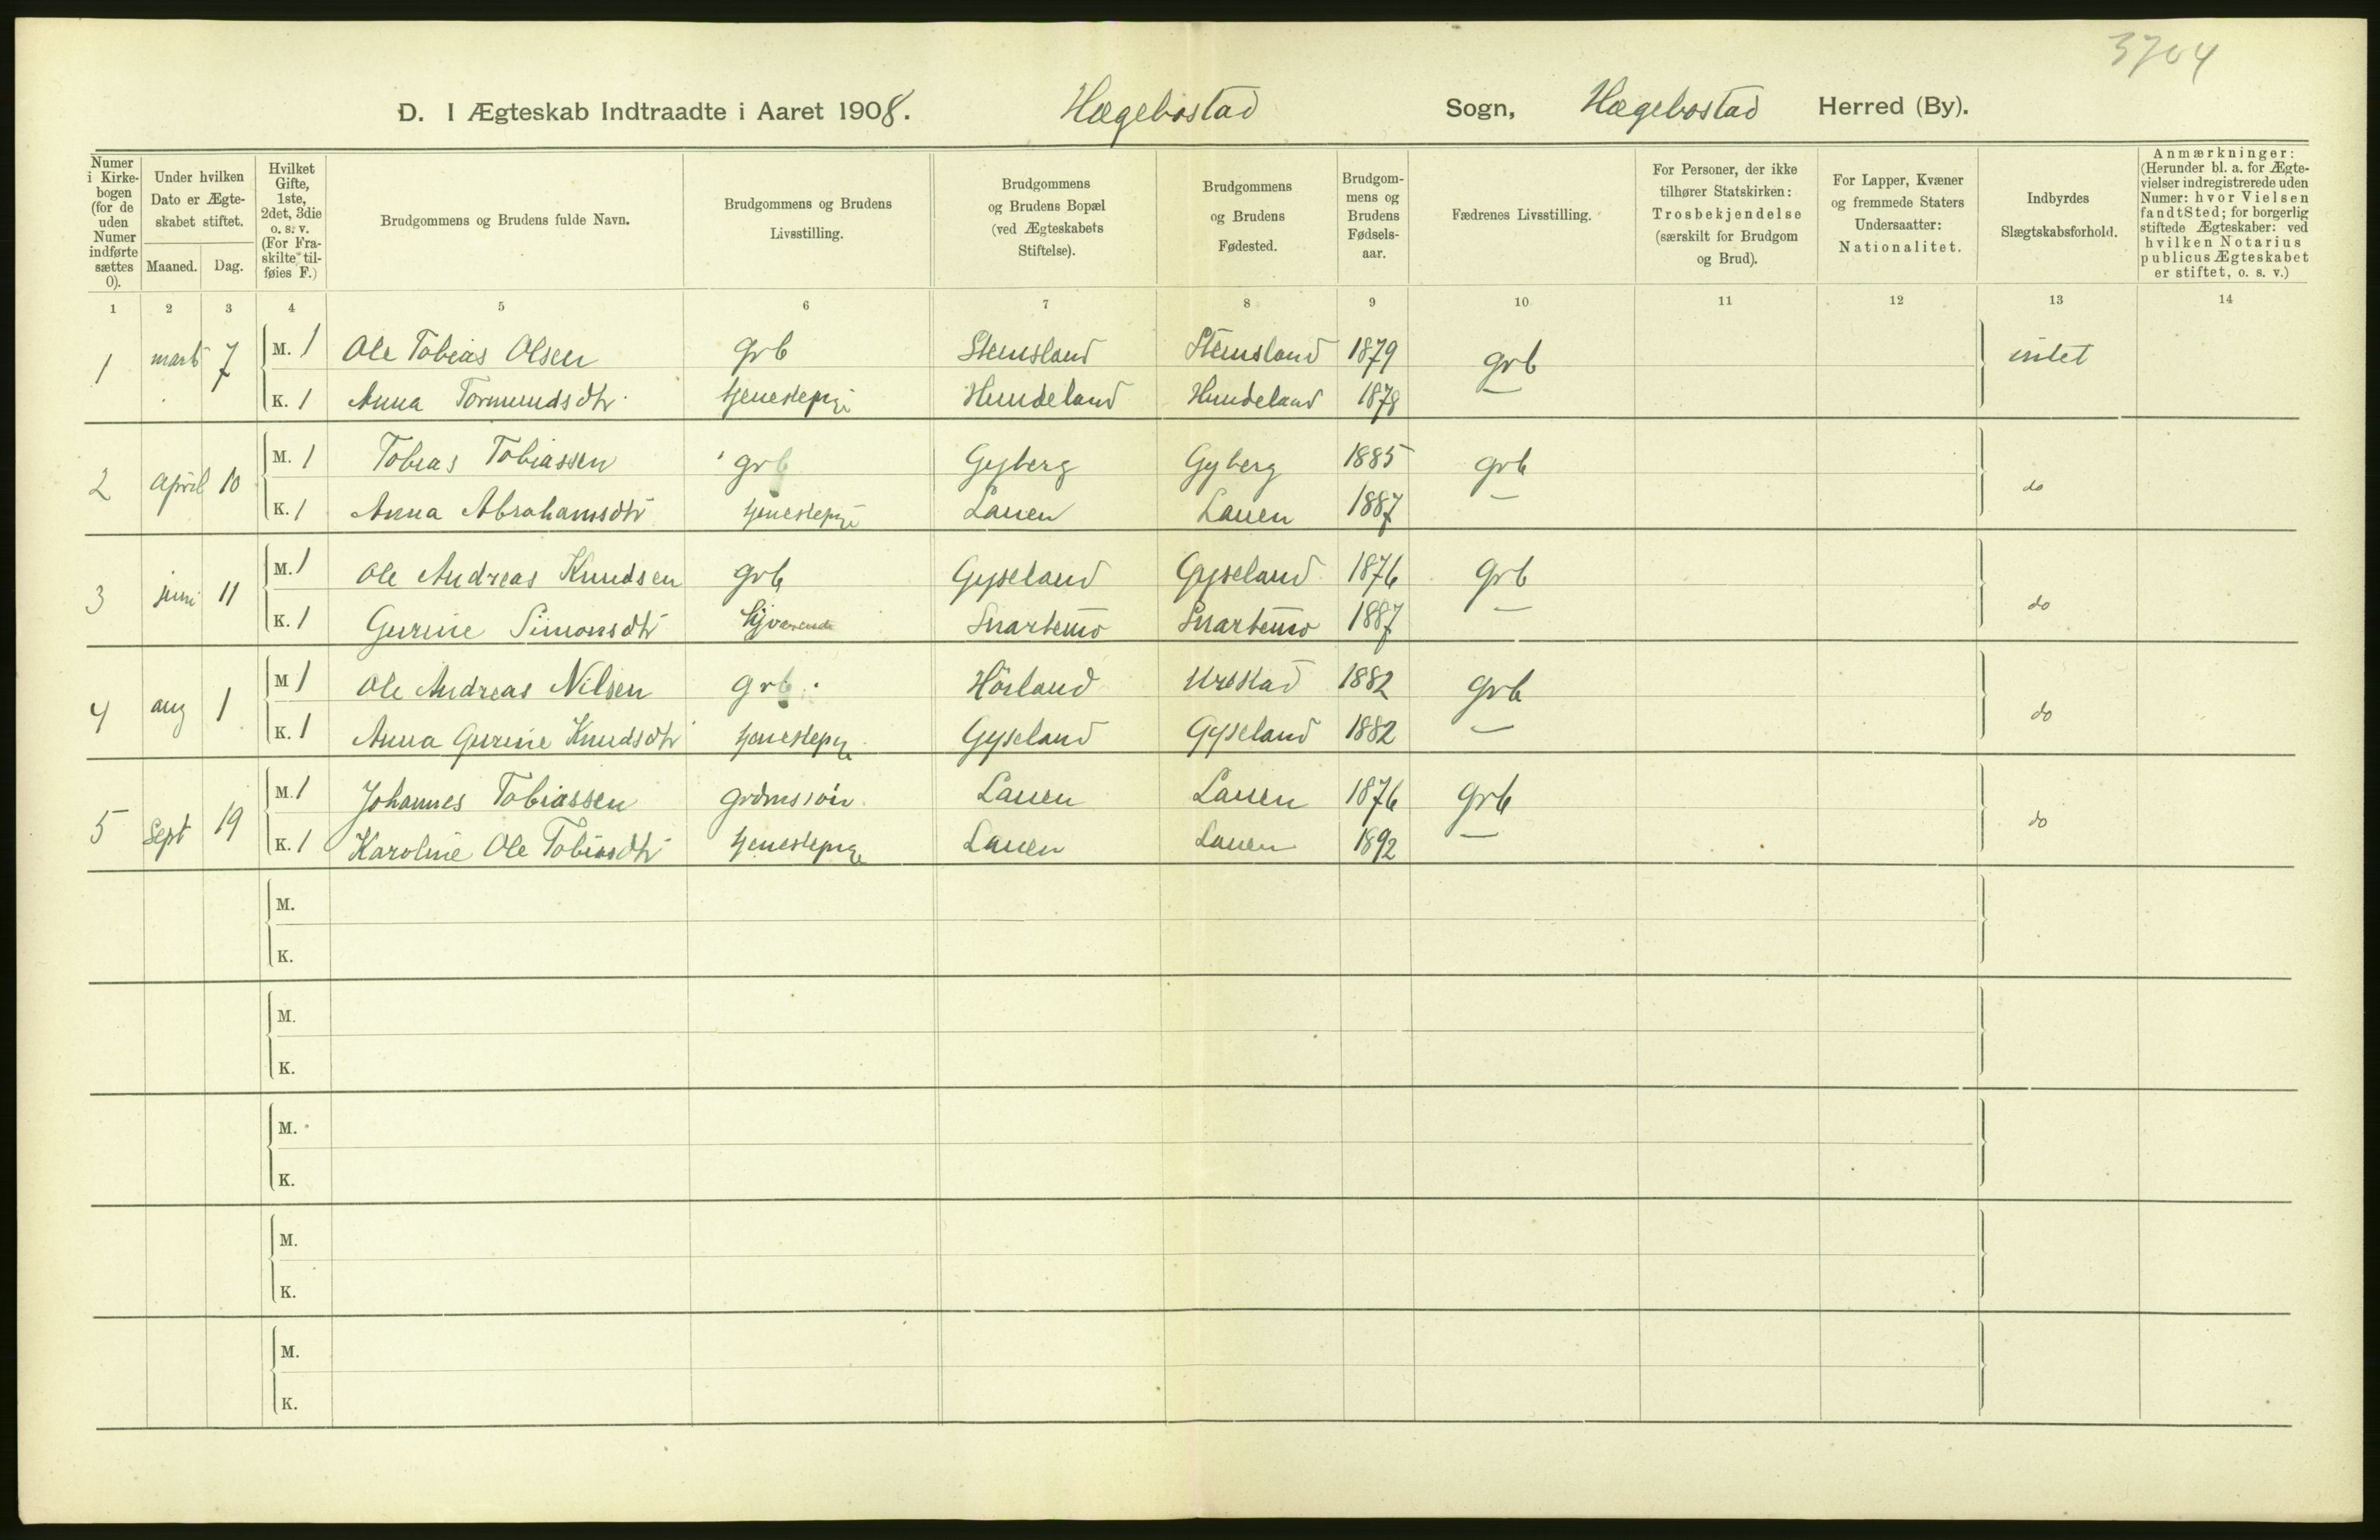 3704
D. I Ægteskab Indtraadte i Aaret 1908. Hægebostad Sogn, Hægebostad Herred (By).
Numer i Kirkebogen (for de uden Numer indførte sættes 0).
Under hvilken Dato er Ægteskabet stiftet.
Maaned. Dag.
Hvilket Gifte, 1ste, 2det, 3die o. s. v. (For Fraskilte tilføies F.)
Brudgommens og Brudens fulde Navn.
Brudgommens og Brudens Livsstilling.
Brudgommens og Brudens Bopæl (ved Ægteskabets Stiftelse).
Brudgommens og Brudens Fødested.
Brudgommens og Brudens Fødselsaar.
Fædrenes Livsstilling.
For Personer, der ikke tilhører Statskirken: Trosbekjendelse (særskilt for Brudgom og Brud).
For Lapper, Kvæner og fremmede Staters Undersaatter: Nationalitet.
Indbyrdes Slægtskabsforhold.
Anmærkninger: (Herunder bl. a. for Ægtevielser indregistrerede uden Numer: hvor Vielsen fandt Sted; for borgerlig stiftede Ægteskaber: ved hvilken Notarius publicus Ægteskabet er stiftet, o. s. v.)
1 2 3 4 5 6 7 8 9 10 11 12 13 14
1 marts 7 M. 1 Ole Tobias Olsen grb Stensland Stensland 1879 grb intet
K. 1 Anna Tormundsdtr tjenestepige Hundeland Hundeland 1878 —
2 april 10 M. 1 Tobias Tobiassen grb Gyberg Gyberg 1885 grb do
K. 1 Anna Abrahamsdtr tjenestepige Lauen Lauen 1887 —
3 juni 11 M. 1 Ole Andreas Knudsen grb Gyseland Gyseland 1876 grb do
K. 1 Gurine Simonsdtr Hjværende Snartemo Snartemo 1887 —
4 aug 1 M 1 Ole Andreas Nilsen grb Hörland Urestad 1882 grb do
K. 1 Anna Gurine Knudsdtr tjenestepige Gyseland Gyseland 1882 —
5 Sept 19 M. 1 Johannes Tobiassen Lauen Lauen 1876 grb do
K. 1 Karoline Ole Tobiasdtr tjenestepige Lauen Lauen 1892 —
M.
K.
M.
K.
M.
K.
M.
K.
M.
K.